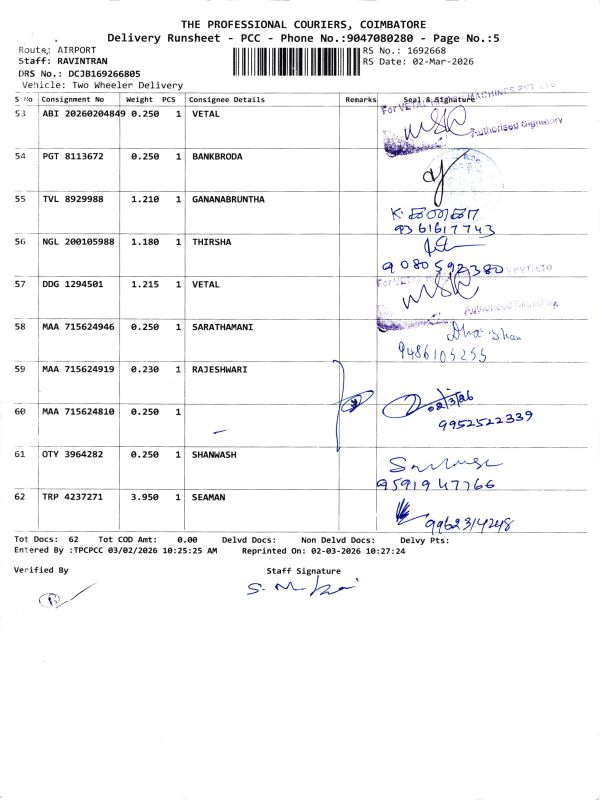 THE PROFESSIONAL COURIERS, COIMBATORE
Delivery Runsheet - PCC - Phone No.:9047080280 - Page No.:5
Route: AIRPORT
RS No.: 1692668
Staff: RAVINTRAN
RS Date: 02-Mar-2026
DRS No.: DCJB169266805
Vehicle: Two Wheeler Delivery
S No Consignment No Weight PCS Consignee Details Remarks Seal & Signature
53 ABI 20260204849 0.250 1 VETAL
For VETAL MACHINES PVT LTD
Authorised Signatory
54 PGT 8113672 0.250 1 BANKBRODA
55 TVL 8929988 1.210 1 GANANABRUNTHA
9361617743
56 NGL 200105988 1.180 1 THIRSHA
9080592380
57 DDG 1294501 1.215 1 VETAL
For VETAL PVT LTD
Authorised Signatory
58 MAA 715624946 0.250 1 SARATHAMANI
9486105255
59 MAA 715624919 0.230 1 RAJESHWARI
02/3/26
60 MAA 715624810 0.250 1
9952522339
61 OTY 3964282 0.250 1 SHANWASH
9591947766
62 TRP 4237271 3.950 1 SEAMAN
9962314248
Tot Docs: 62 Tot COD Amt: 0.00 Delvd Docs: Non Delvd Docs: Delvy Pts:
Entered By :TPCPCC 03/02/2026 10:25:25 AM Reprinted On: 02-03-2026 10:27:24
Verified By Staff Signature